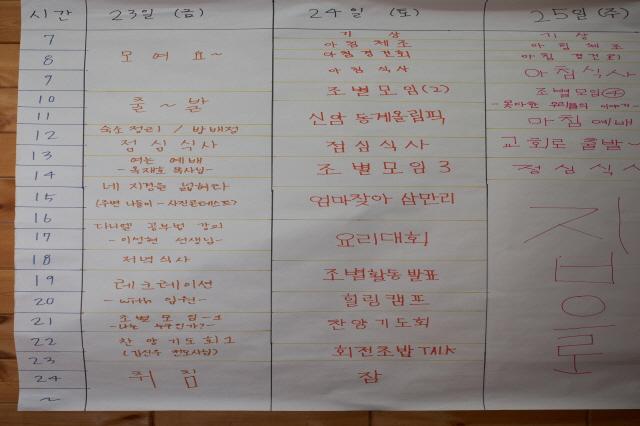 시간 23일 (금) 24일 (토) 25일 (주)
7 기상 기상
아침체조 아침체조
8 모여요~ 아침경건회 아침경건회
9 아침식사 아침식사
10 출~발 조별모임(2) 조별모임④
11 신암동계올림픽 -못다한 우리들의 이야기-
12 숙소정리 / 방배정 마침예배
점심식사 점심식사 교회로 출발~
13 여는 예배
14 -옥재호 목사님- 조별모임3 점심식사
15 네 지경을 넓히라 엄마찾아 삼만리
(주변 나들이-사진콘테스트)
16 다니엘 공부법 강의
17 -이성현 선생님- 요리대회 집으로
18 저녁식사
19 레크레이션 조별활동발표
20 -with 임원- 힐링캠프
21 조별모임-1 찬양기도회
-나는 누구인가?-
22 찬양기도회1 회전초밥 TALK
23
24 취침 잠
~